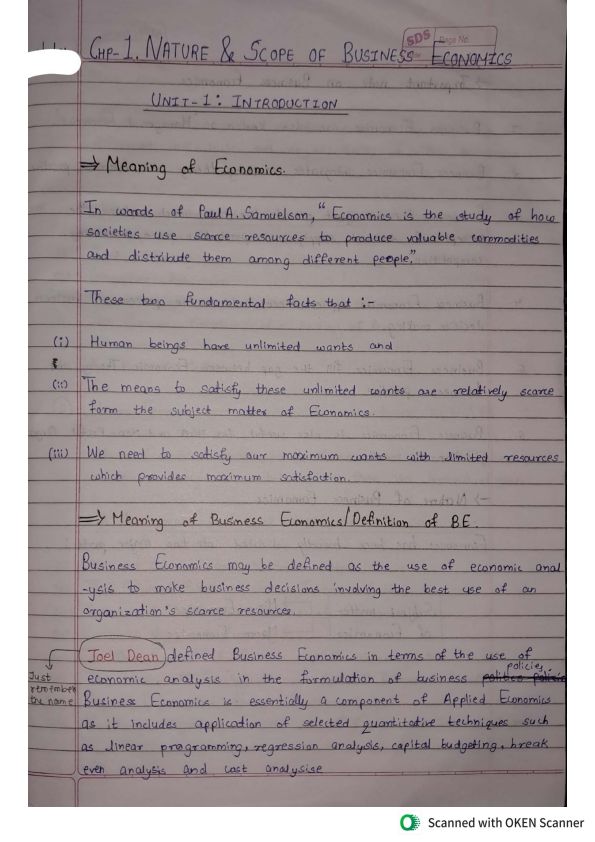 SDS Page No.
CHP-1. NATURE & SCOPE OF BUSINESS ECONOMICS
UNIT-1: INTRODUCTION
⇒ Meaning of Economics.
In words of Paul A. Samuelson, "Economics is the study of how
societies use scarce resources to produce valuable commodities
and distribute them among different people."
These two fundamental facts that :-
(i) Human beings have unlimited wants and
(ii) The means to satisfy these unlimited wants are relatively scarce
form the subject matter of Economics.
(iii) We need to satisfy our maximum wants with limited resources
which provides maximum satisfaction.
⇒ Meaning of Business Economics/Definition of BE.
Business Economics may be defined as the use of economic anal
-ysis to make business decisions involving the best use of an
organization's scarce resources.
Joel Dean defined Business Economics in terms of the use of
Just
remember
the name
economic analysis in the formulation of business policies,
Business Economics is essentially a component of Applied Economics
as it includes application of selected quantitative techniques such
as linear programming, regression analysis, capital budgeting, break
even analysis and cost analysise
Scanned with OKEN Scanner